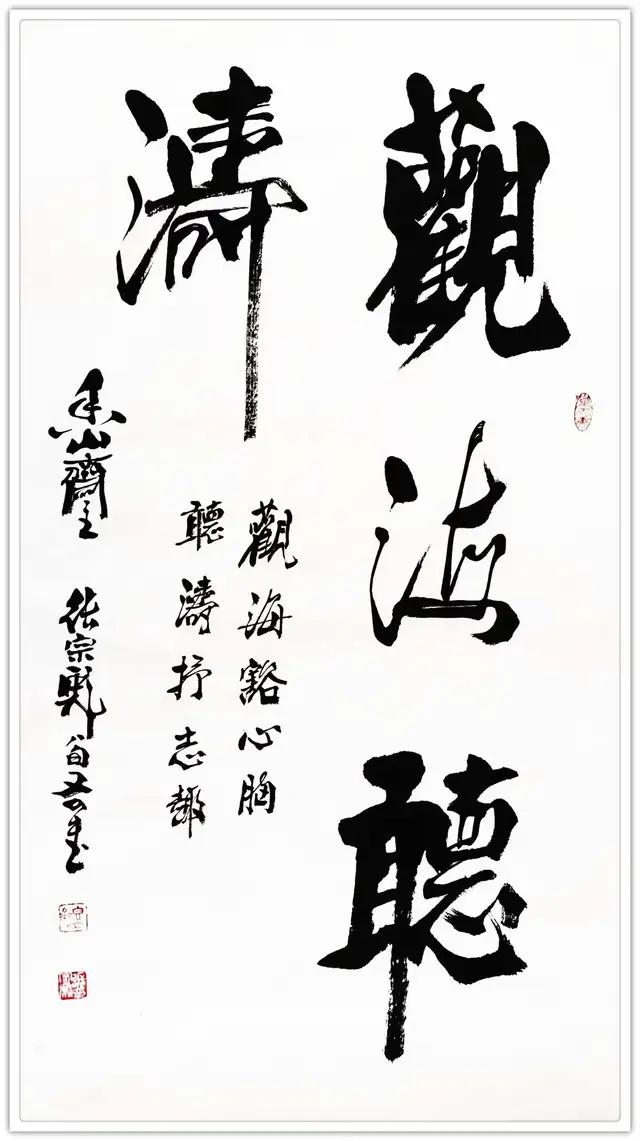 觀海聽
濤
觀海豁心胸
聽濤抒志趣
山齋主 張宗